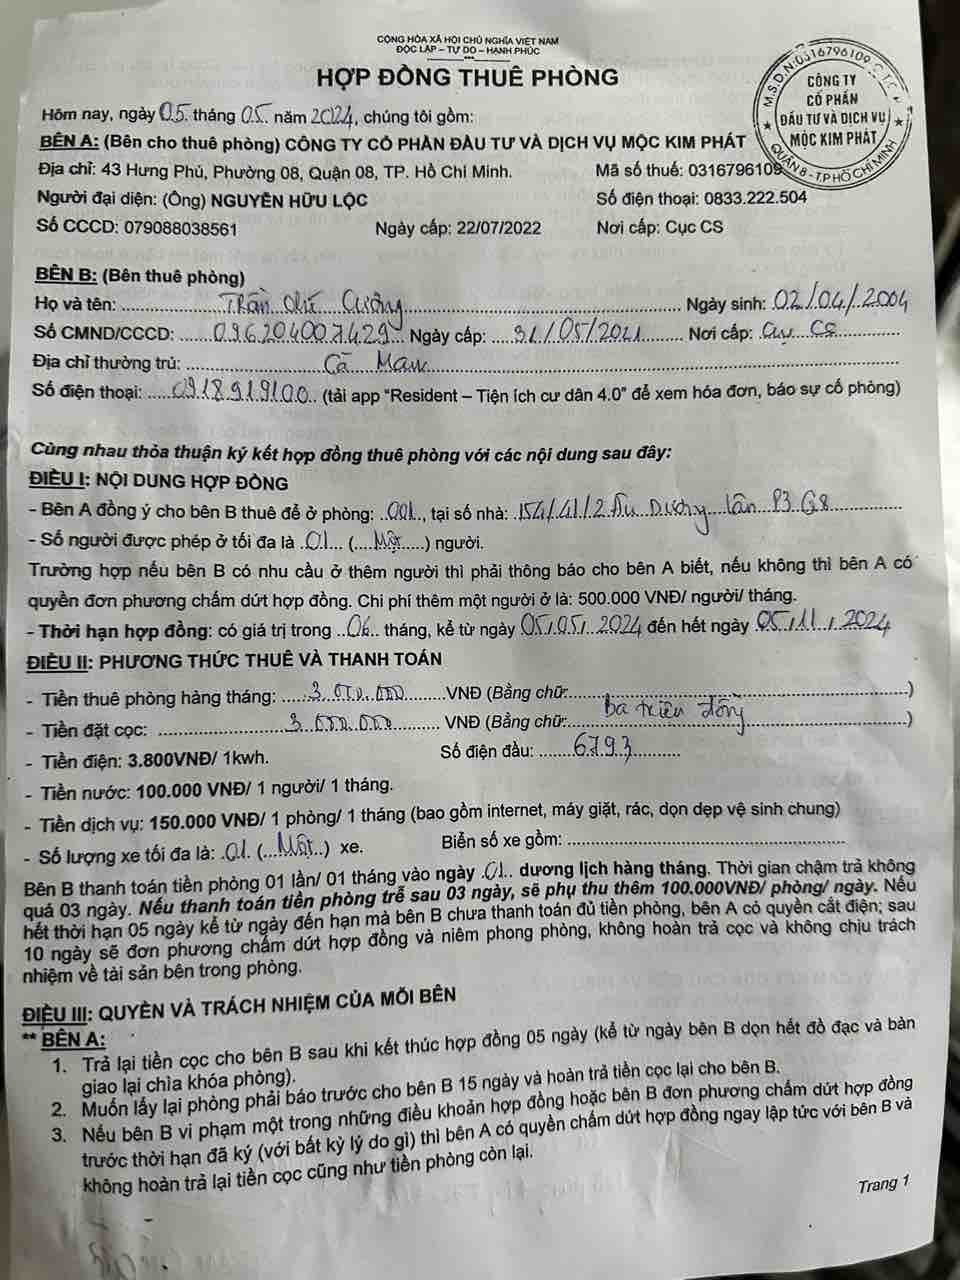 CỘNG HÒA XÃ HỘI CHỦ NGHĨA VIỆT NAM
ĐỘC LẬP – TỰ DO – HẠNH PHÚC
HỢP ĐỒNG THUÊ PHÒNG
M.S.D.N:0316796109
CÔNG TY
CỔ PHẦN
ĐẦU TƯ VÀ DỊCH VỤ
MỘC KIM PHÁT
QUẬN 8 - T.P HỒ CHÍ MINH
Hôm nay, ngày 05 tháng 05 năm 2024, chúng tôi gồm:
BÊN A: (Bên cho thuê phòng) CÔNG TY CỔ PHẦN ĐẦU TƯ VÀ DỊCH VỤ MỘC KIM PHÁT
Địa chỉ: 43 Hưng Phú, Phường 08, Quận 08, TP. Hồ Chí Minh. Mã số thuế: 0316796109
Người đại diện: (Ông) NGUYỄN HỮU LỘC Số điện thoại: 0833.222.504
Số CCCD: 079088038561 Ngày cấp: 22/07/2022 Nơi cấp: Cục CS
BÊN B: (Bên thuê phòng)
Họ và tên: Trần Chí Cường Ngày sinh: 02/04/2004
Số CMND/CCCD: 096204007429 Ngày cấp: 31/05/2021 Nơi cấp: Cục CS
Địa chỉ thường trú: Cà Mau
Số điện thoại: 0918919100 (tải app “Resident – Tiện ích cư dân 4.0” để xem hóa đơn, báo sự cố phòng)
Cùng nhau thỏa thuận ký kết hợp đồng thuê phòng với các nội dung sau đây:
ĐIỀU I: NỘI DUNG HỢP ĐỒNG
- Bên A đồng ý cho bên B thuê để ở phòng: 001, tại số nhà: 154/41/2 Âu Dương Lân P3 Q8
- Số người được phép ở tối đa là 01 (Một) người.
Trường hợp nếu bên B có nhu cầu ở thêm người thì phải thông báo cho bên A biết, nếu không thì bên A có
quyền đơn phương chấm dứt hợp đồng. Chi phí thêm một người ở là: 500.000 VNĐ/ người/ tháng.
- Thời hạn hợp đồng: có giá trị trong 06 tháng, kể từ ngày 05/05/2024 đến hết ngày 05/11/2024
ĐIỀU II: PHƯƠNG THỨC THUÊ VÀ THANH TOÁN
- Tiền thuê phòng hàng tháng: 3.000.000 VNĐ (Bằng chữ: )
- Tiền đặt cọc: 3.000.000 VNĐ (Bằng chữ: Ba triệu đồng )
- Tiền điện: 3.800VNĐ/ 1kwh. Số điện đầu: 6793
- Tiền nước: 100.000 VNĐ/ 1 người/ 1 tháng.
- Tiền dịch vụ: 150.000 VNĐ/ 1 phòng/ 1 tháng (bao gồm internet, máy giặt, rác, dọn dẹp vệ sinh chung)
- Số lượng xe tối đa là: 01 (Một) xe. Biển số xe gồm:
Bên B thanh toán tiền phòng 01 lần/ 01 tháng vào ngày 01 dương lịch hàng tháng. Thời gian chậm trả không
quá 03 ngày. Nếu thanh toán tiền phòng trễ sau 03 ngày, sẽ phụ thu thêm 100.000VNĐ/ phòng/ ngày. Nếu
hết thời hạn 05 ngày kể từ ngày đến hạn mà bên B chưa thanh toán đủ tiền phòng, bên A có quyền cắt điện; sau
10 ngày sẽ đơn phương chấm dứt hợp đồng và niêm phong phòng, không hoàn trả cọc và không chịu trách
nhiệm về tài sản bên trong phòng.
ĐIỀU III: QUYỀN VÀ TRÁCH NHIỆM CỦA MỖI BÊN
** BÊN A:
1. Trả lại tiền cọc cho bên B sau khi kết thúc hợp đồng 05 ngày (kể từ ngày bên B dọn hết đồ đạc và bàn
giao lại chìa khóa phòng).
2. Muốn lấy lại phòng phải báo trước cho bên B 15 ngày và hoàn trả tiền cọc lại cho bên B.
3. Nếu bên B vi phạm một trong những điều khoản hợp đồng hoặc bên B đơn phương chấm dứt hợp đồng
trước thời hạn đã ký (với bất kỳ lý do gì) thì bên A có quyền chấm dứt hợp đồng ngay lập tức với bên B và
không hoàn trả lại tiền cọc cũng như tiền phòng còn lại.
Trang 1